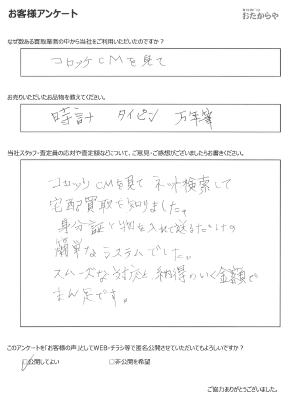 お客様アンケート
おたからや
なぜ数ある買取業者の中から当社をご利用いただいたのですか？
コロッケCMを見て
お売りいただいたお品物を教えてください。
時計 タイピン 万年筆
当社スタッフ・査定員の応対や査定額などについて、ご意見・ご感想がございましたらお書きください。
コロッケCMを見て ネット検索して
宅配買取を知りました。
身分証と物を入れて送るだけの
簡単なシステムでした。
スムーズな対応と納得のいく金額で
まん足です。
このアンケートを「お客様の声」としてWEB・チラシ等で匿名公開させていただいてもよろしいですか？
□公開してよい □非公開を希望
ご協力ありがとうございました。